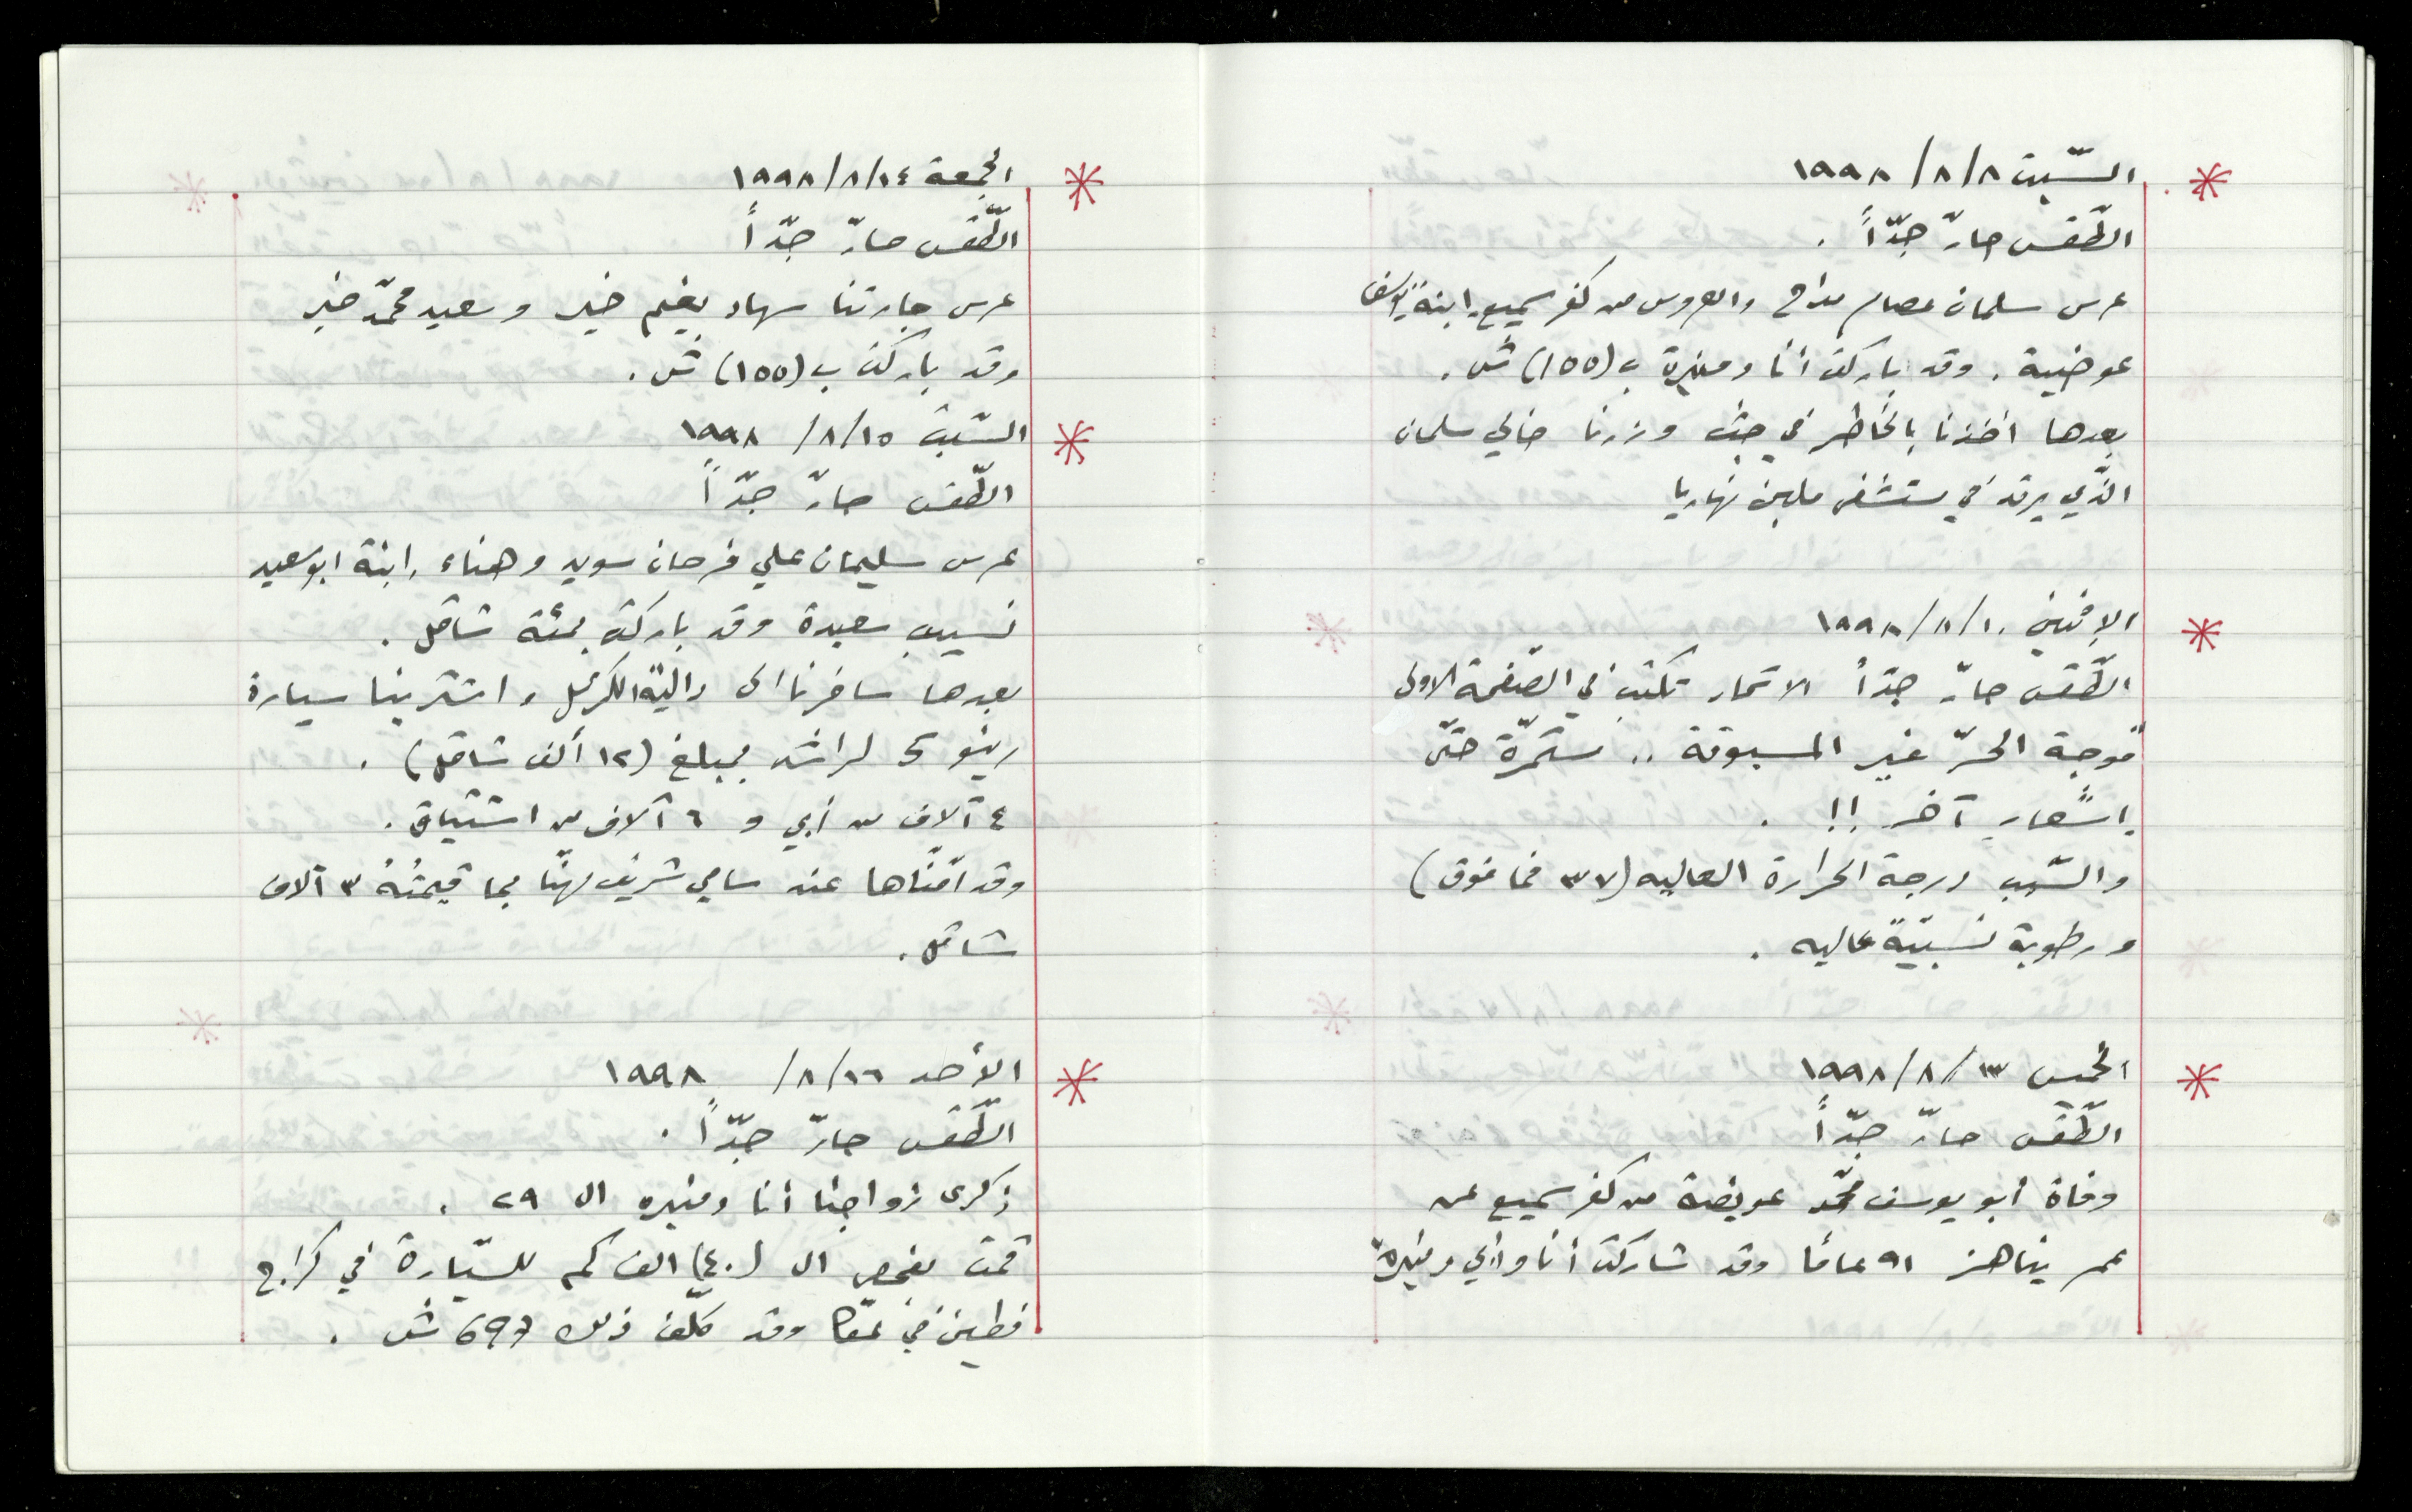 السّبت ٨/٨/١٩٩٨
الطّقس حارّ جدّاً .
عرس سلمان عصام مداح والعروس من كفر سميع ابنة يوسف
عوضية . وقد باركت أنا ومنيرة ب (١٥٥) ش .
بعدها اخذنا بالخاطر في جث وزرنا خالي سلمان
الذّي يرقد في مستشفى ملبن نهاريا
الإثنين ١٠/٨/١٩٩٨
الطّقس حارّ جدّاً الاتحاد تكتب في الصّفحة الاولى
موجة الحرّ غير المسبوقة .. مستمرّة حتّى
إشعارٍ آخر !! .
والسّبب درجة الحرارة العاليه (٣٧ فما فوق)
ورطوبة نسبيّة عاليه .
الخميس ١٣/٨/١٩٩٨
الطّقس حارّ جدّاً
وفاة أبو يوسف محمّد عويضة من كفر سميع عن
عمر يناهز ٩١ عامًا وقد شاركت أنا وأبي ومنيرة
الجمعة ١٤/٨/١٩٩٨
الطّقس حارّ جدّاً
عرس جارتنا سهاد يغيم خير وسعيد محمّد خير
وقد باركت ب (١٥٥) ش .
السّبت ١٥/٨/١٩٩٨
الطّقس حارّ جدّاً
عرس سليمان علي فرحان سويد وهناء ابنة ابو سعيد
نسيب سعيدة وقد باركت بمئة شاقل .
بعدها سافرنا الى دالية الكرمل واشترينا سيارة
رينو ٤ لراشد بمبلغ (١٢ ألف شاقل) .
٤ آلاف من أبي و ٦ آلاف من اشتياق .
وقد أمّنّاها عند سامي شريف مهنّا بما قيمتهُ ٣ آلاف
شاقل .
الأحد ١٦/٨/١٩٩٨
الطّقس حارّ جدّاً .
ذكرى زواجنا أنا ومنيره ال ٢٩ .
قمت بفحص ال (٤٠) الف كم للسّيارة في كراج
فطين في عكّا وقد كلّف ذلك 697 ش .